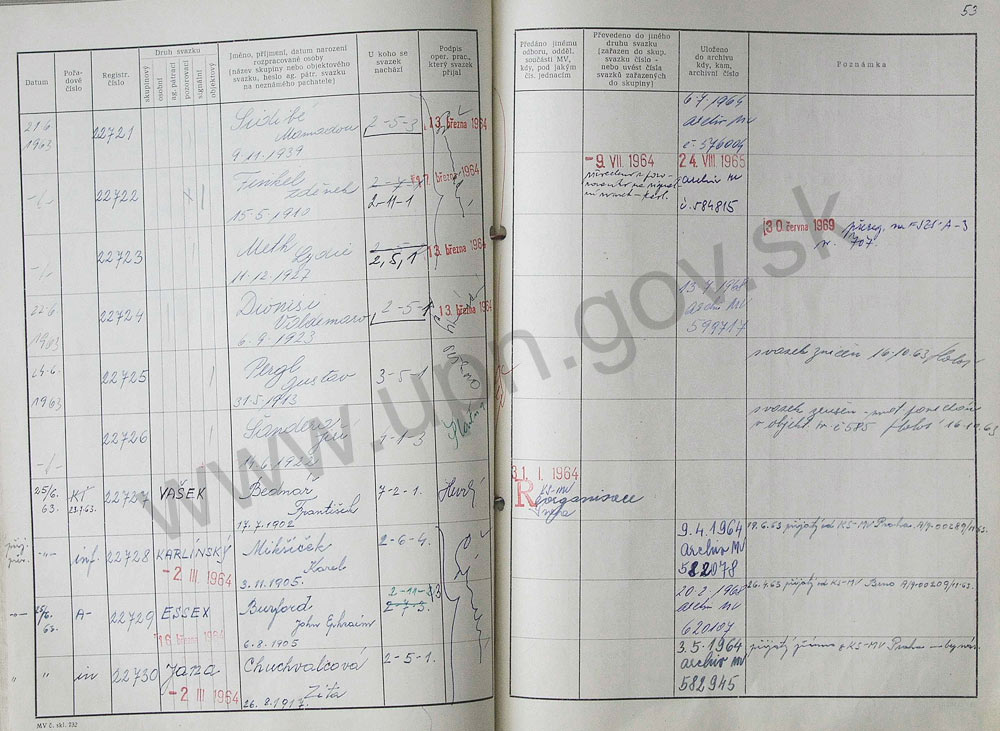 53
Datum
Pořa-
dové
číslo
Registr.
číslo
Druh svazku
skupinový
osobní
ag. pátrací
pozorovací
signální
objektový
Jméno, příjmení, datum narození
rozpracované osoby
(název skupiny nebo objektového
svazku, heslo ag. pátr. svazku
na neznámého pachatele)
U koho se
svazek
nachází
Podpis
oper. prac.,
který svazek
přijal
Předáno jinému
odboru, odděl.
součásti MV,
kdy, pod jakým
čís. jednacím
Převedeno do jiného
druhu svazku
(zařazen do skup.
svazku číslo -
nebo uvést čísla
svazků zařazených
do skupiny)
Uloženo
do archivu
kdy, kam,
archivní číslo
Poznámka
21 6
1963
22721
Sidibé
Mamadou
9.11.1939
2-5-3
13. března 1964
6 7. 1964
archiv MV
č. 576004
22722
Finkel
Zdeněk
15.5.1910
2-11-1
7. března 1964
- 9. VII. 1964
24. VIII. 1965
archiv MV
č. 584815
22723
Meth
Lydie
11.12.1927
2,5,1
13. března 1964
30. června 1969
přereg. na FSZS-A-3
707.
22.6
1963
22724
Dionisi
Valdemaro
6.9.1923
2-5-1
13. března 1964
archiv MV
599717
24.6
1963
22725
Pergl
Gustav
31.5.1913
3-5-1
svazek zničen 16.10.63
22726
Šandera
Jiří
1-1-3
svazek zrušen - mat. ponechán
v objekt. sv. č 585 16.10.63
25/6.
63.
KT
22727
VAŠEK
Bednář
František
17.7.1902
7-2-1.
31. I. 1964
KS-MV
Reorganisace
inf.
22728
KARLÍNSKÝ
-2 III 1964
Mikšíček
Karel
3.11.1905.
2-6-4.
9.4.1964
archiv MV
582078
19.6.63 přijatý od KS-MV Praha. A/9-00289/11-63.
25/6.
63.
A-
22729
ESSEX
16. března 1964
Burford
John Ephraim
6.8.1905
2-11-3
2-7-3.
archiv MV
620107
26.4.63 přijatý od KS-MV Brno A/9-00209/11-63.
" "
in
22730
JANA
-2 III 1964
Chuchvalcová
Zita
26.8.1917.
2-5-1.
3.5.1964
archiv MV
582945
MV č. skl. 732
www.upn.gov.sk